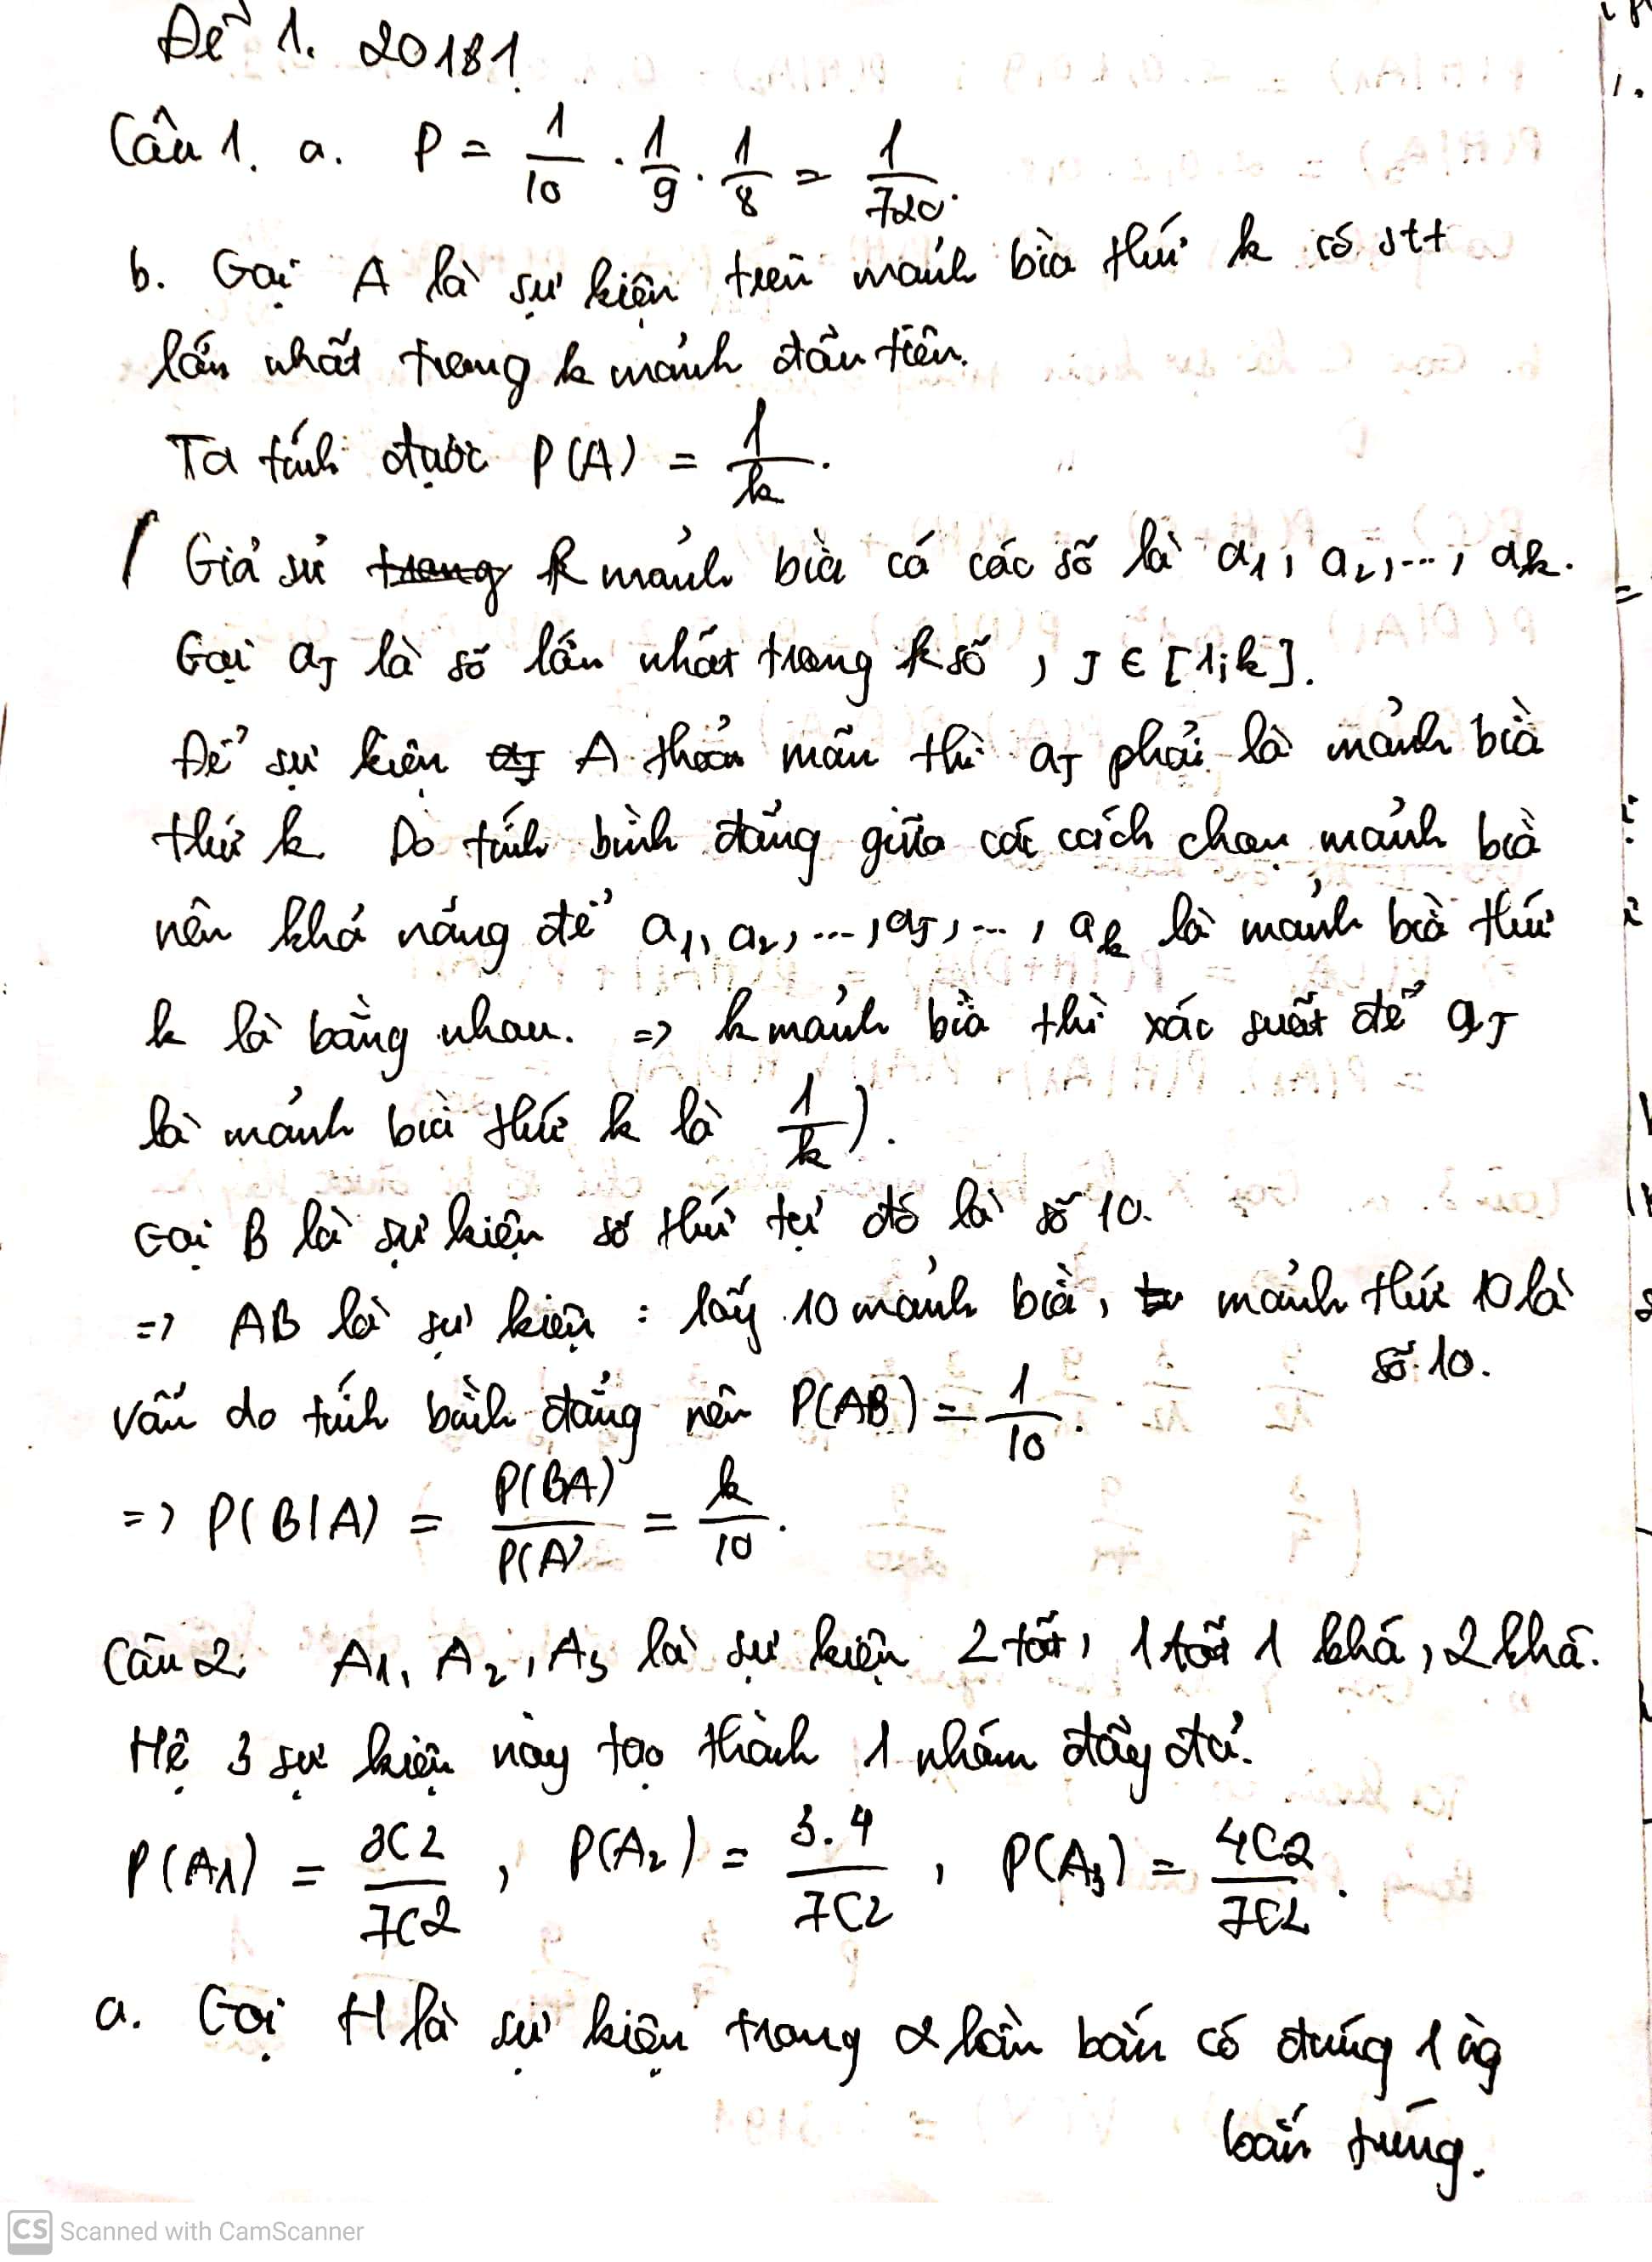 Đề 1. 20181
Câu 1. a. P = 1/10 . 1/9 . 1/8 = 1/720.
b. Gọi A là sự kiện trên mảnh bìa thứ k có stt
lớn nhất trong k mảnh đầu tiên.
Ta tính được P(A) = 1/k.
( Giả sử trong k mảnh bìa có các số là a1, a2, ..., ak.
Gọi aJ là số lớn nhất trong k số, J ∈ [1;k].
Để sự kiện aJ A thoả mãn thì aJ phải là mảnh bìa
thứ k. Do tính bình đẳng giữa các cách chọn mảnh bìa
nên khả năng để a1, a2, ..., aJ, ..., ak là mảnh bìa thứ
k là bằng nhau. => k mảnh bìa thì xác suất để aJ
là mảnh bìa thứ k là 1/k).
Gọi B là sự kiện số thứ tự đó là số 10.
=> AB là sự kiện : lấy 10 mảnh bìa, mảnh thứ 10 là
số 10.
Vẫn do tính bình đẳng nên P(AB) = 1/10.
=> P(B|A) = P(BA)/P(A) = k/10.
Câu 2. A1, A2, A3 là sự kiện 2 tốt, 1 tốt 1 khá, 2 khá.
Hệ 3 sự kiện này tạo thành 1 nhóm đầy đủ.
P(A1) = 3C2/7C2, P(A2) = 3.4/7C2, P(A3) = 4C2/7C2.
a. Gọi H là sự kiện trong 2 lần bắn có đúng 1 ng
bắn trúng.
CS Scanned with CamScanner